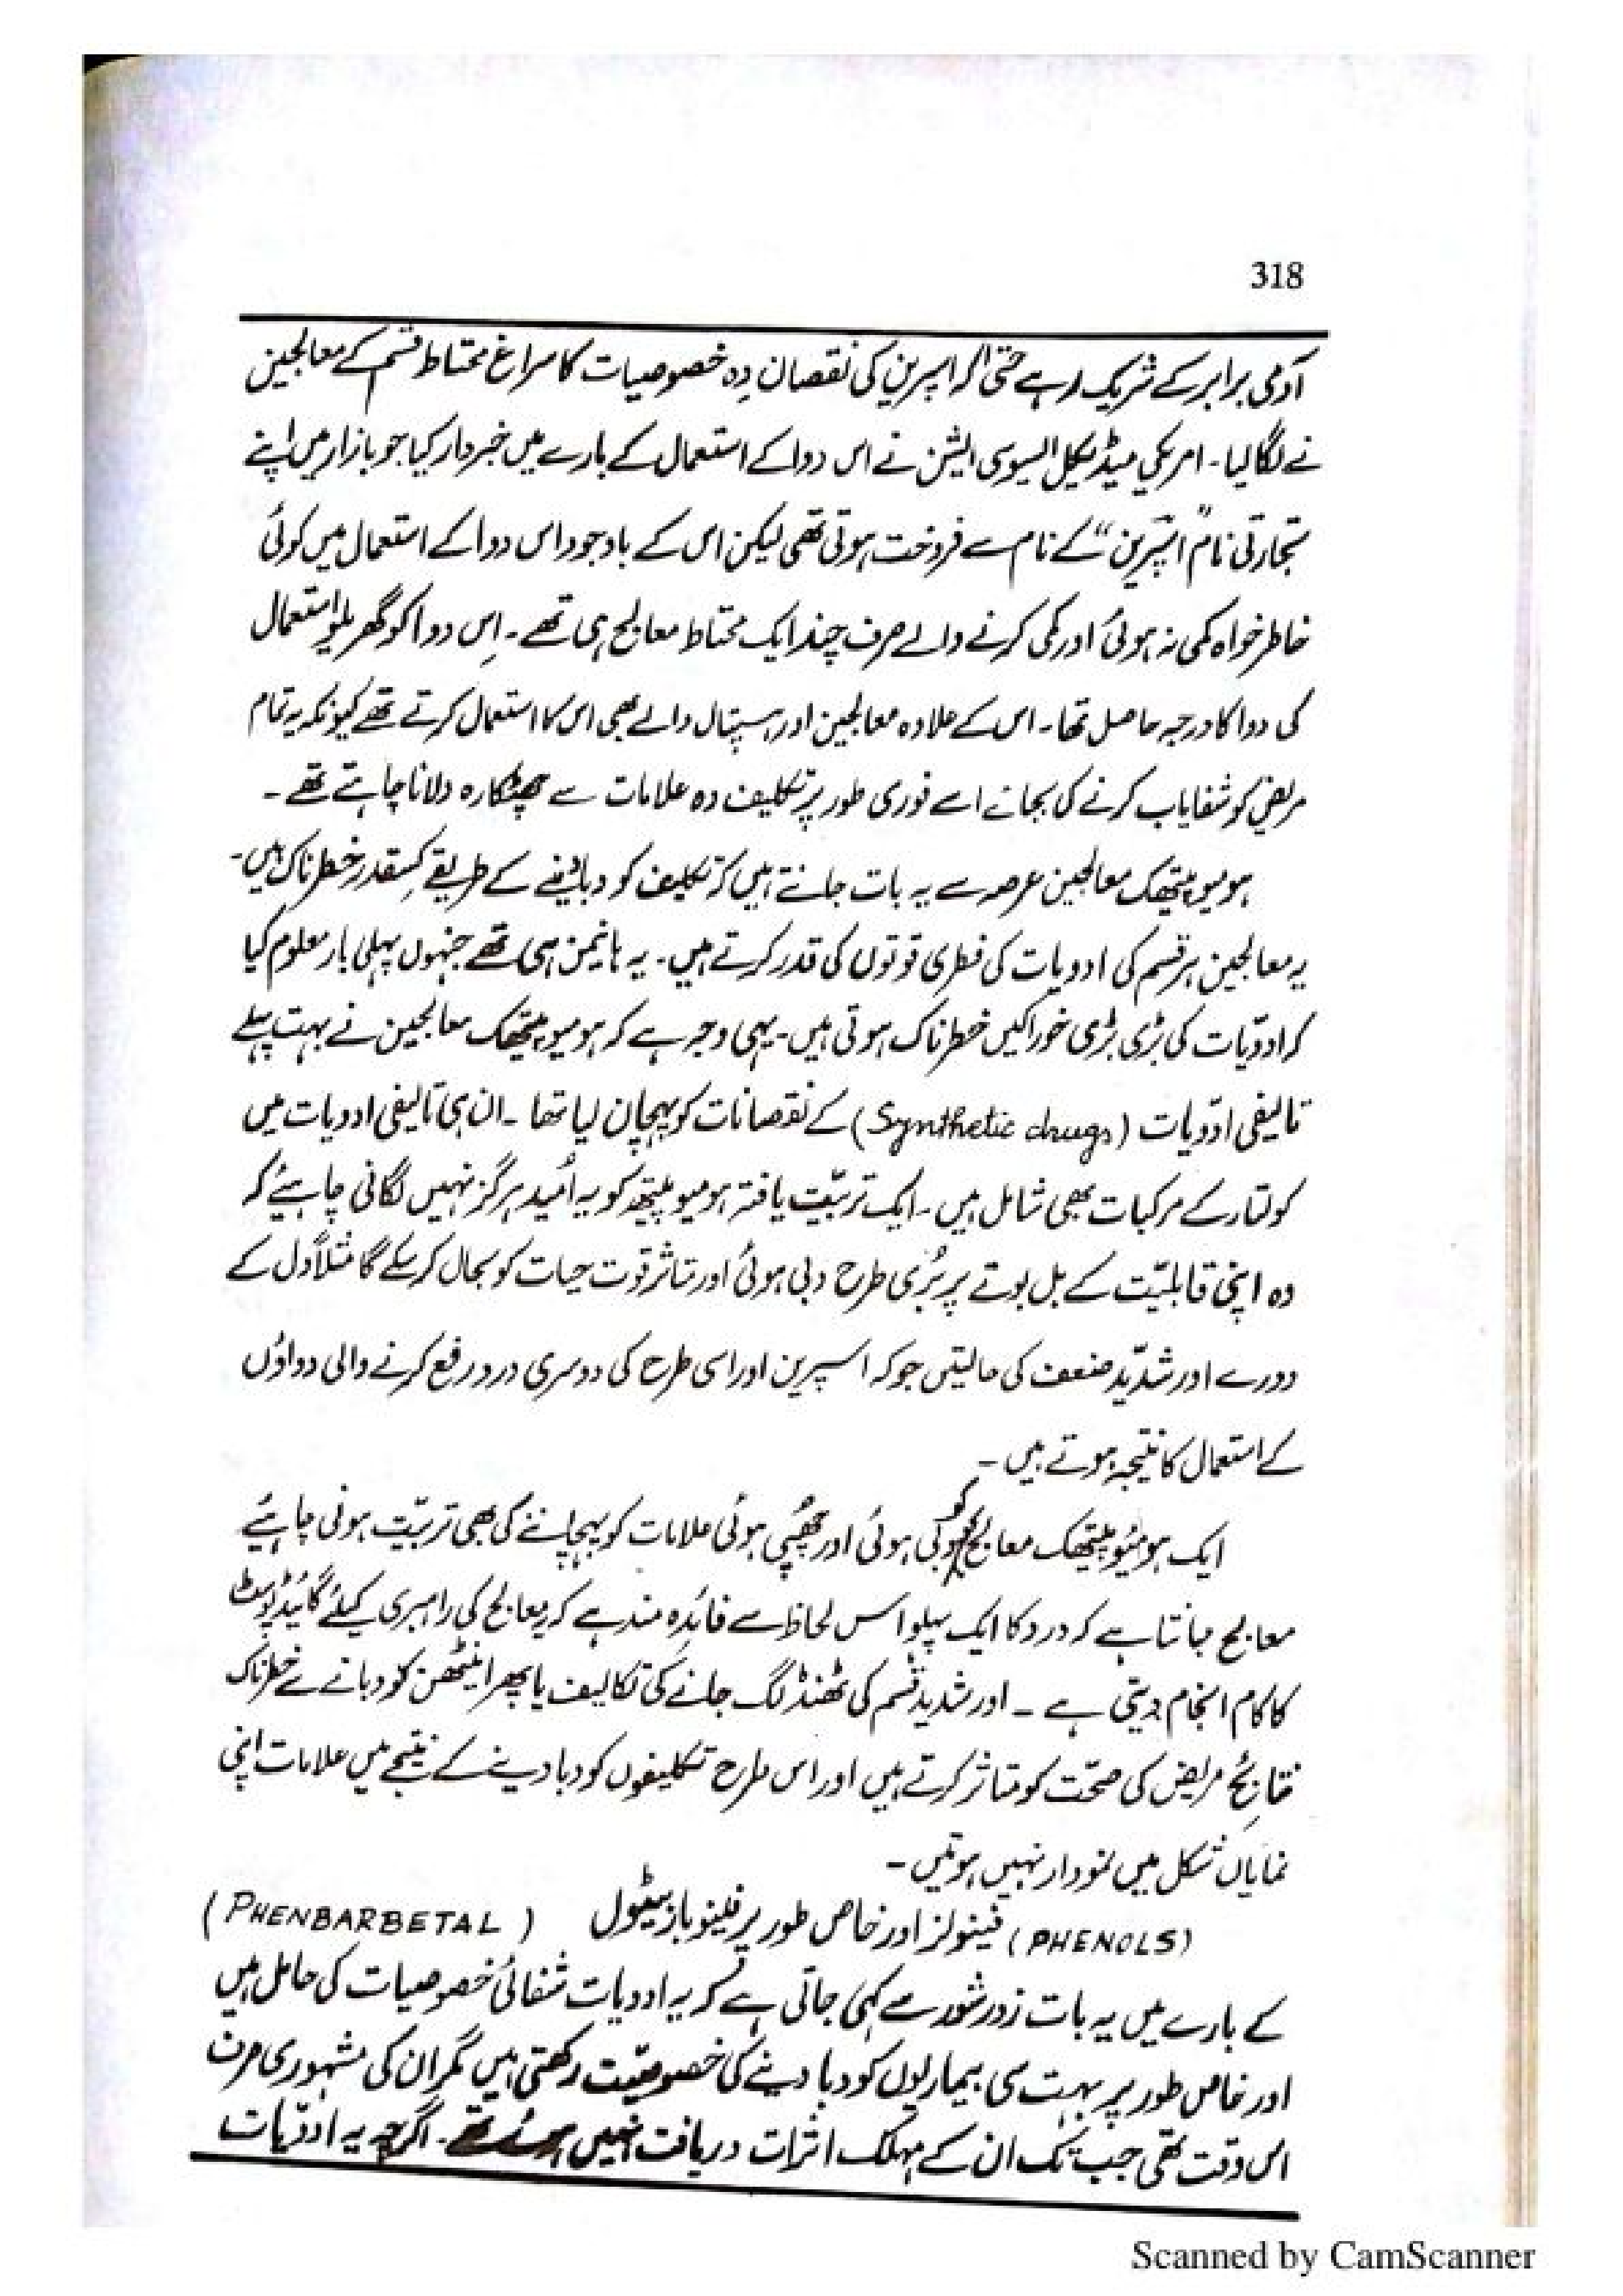 318
آدمی برابر کے شریک رہے حتیٰ اکہ اسپرین کی نقصان دِہ خصوصیات کا سراغ محتاط قسم کے معالجین
نے لگا لیا۔ امریکی میڈیکل ایسوسی ایشن نے اس دوا کے استعمال کے بارے میں خبردار کیا جو بازار میں اپنے
تجارتی نام "اسپرین" کے نام سے فروخت ہوتی تھی لیکن اس کے باوجود اس دوا کے استعمال میں کوئی
خاطر خواہ کمی نہ ہوئی اور کمی کرنے والے صرف چند ایک محتاط معالج ہی تھے۔ اِس دوا کو گھریلو استعمال
کی دوا کا درجہ حاصل تھا۔ اس کے علاوہ معالجین اور ہسپتال والے بھی اس کا استعمال کرتے تھے کیونکہ یہ تمام
مریض کو شفایاب کرنے کی بجائے اسے فوری طور پر تکلیف دہ علامات سے چھٹکارہ دلانا چاہتے تھے۔
ہومیوپیتھک معالجین عرصہ سے یہ بات جانتے ہیں کہ تکلیف کو دبانے کے طریقے کسقدر خطرناک ہیں۔
یہ معالجین ہر قسم کی ادویات کی فطری قوتوں کی قدر کرتے ہیں۔ یہ ہانیمن ہی تھے جنہوں پہلی بار معلوم کیا
کہ ادویّات کی بڑی بڑی خوراکیں خطرناک ہوتی ہیں۔ یہی وجہ ہے کہ ہومیوپیتھک معالجین نے بہت پہلے
تالیفی ادویّات (Synthetic drugs) کے نقصانات کو پہچان لیا تھا۔ ان ہی تالیفی ادویات میں
کولتار کے مرکبات بھی شامل ہیں۔ ایک تربیّت یافتہ ہومیوپیتھ کو یہ اُمید ہرگز نہیں لگانی چاہیئے کہ
وہ اپنی قابلیّت کے بل بوتے پر بُری طرح دبی ہوئی اور متاثر قوت حیات کو بحال کر سکے گا مثلاً دل کے
دورے اور شدید ضعف کی حالیتں جو کہ اسپرین اور اسی طرح کی دوسری درد رفع کرنے والی دواؤں
کے استعمال کا نتیجہ ہوتے ہیں۔
ایک ہومیوپیتھک معالج کو دبی ہوئی اور چھُپی ہوئی علامات کو پہچاننے کی بھی تربیّت ہونی چاہیئے
معالج جانتا ہے کہ درد کا ایک پہلو اس لحاظ سے فائدہ مند ہے کہ معالج کی راہبری کیلئے گائیڈ پوسٹ
کا کام انجام دیتی ہے۔ اور شدید قسم کی ٹھنڈ لگ جانے کی تکالیف یا پھر اینٹھن کو دبانے سے خطرناک
نتائج مریض کی صحّت کو متاثر کرتے ہیں اور اس طرح تکلیفوں کو دبا دینے کے نتیجے میں علامات اپنی
نمایاں شکل میں نمودار نہیں ہوتیں۔
(PHENOLS) فینولز اور خاص طور پر فینوباربیٹول (PHENBARBETAL)
کے بارے میں یہ بات زور شور سے کہی جاتی ہے کہ یہ ادویات شفائی خصوصیات کی حامل ہیں
اور خاص طور پر بہت سی بیماریوں کو دبا دینے کی خصوصیّت رکھتی ہیں مگر ان کی مشہوری صرف
اس وقت تھی جب تک ان کے مہلک اثرات دریافت نہیں ہوئے تھے۔ اگرچہ یہ ادویّات
Scanned by CamScanner